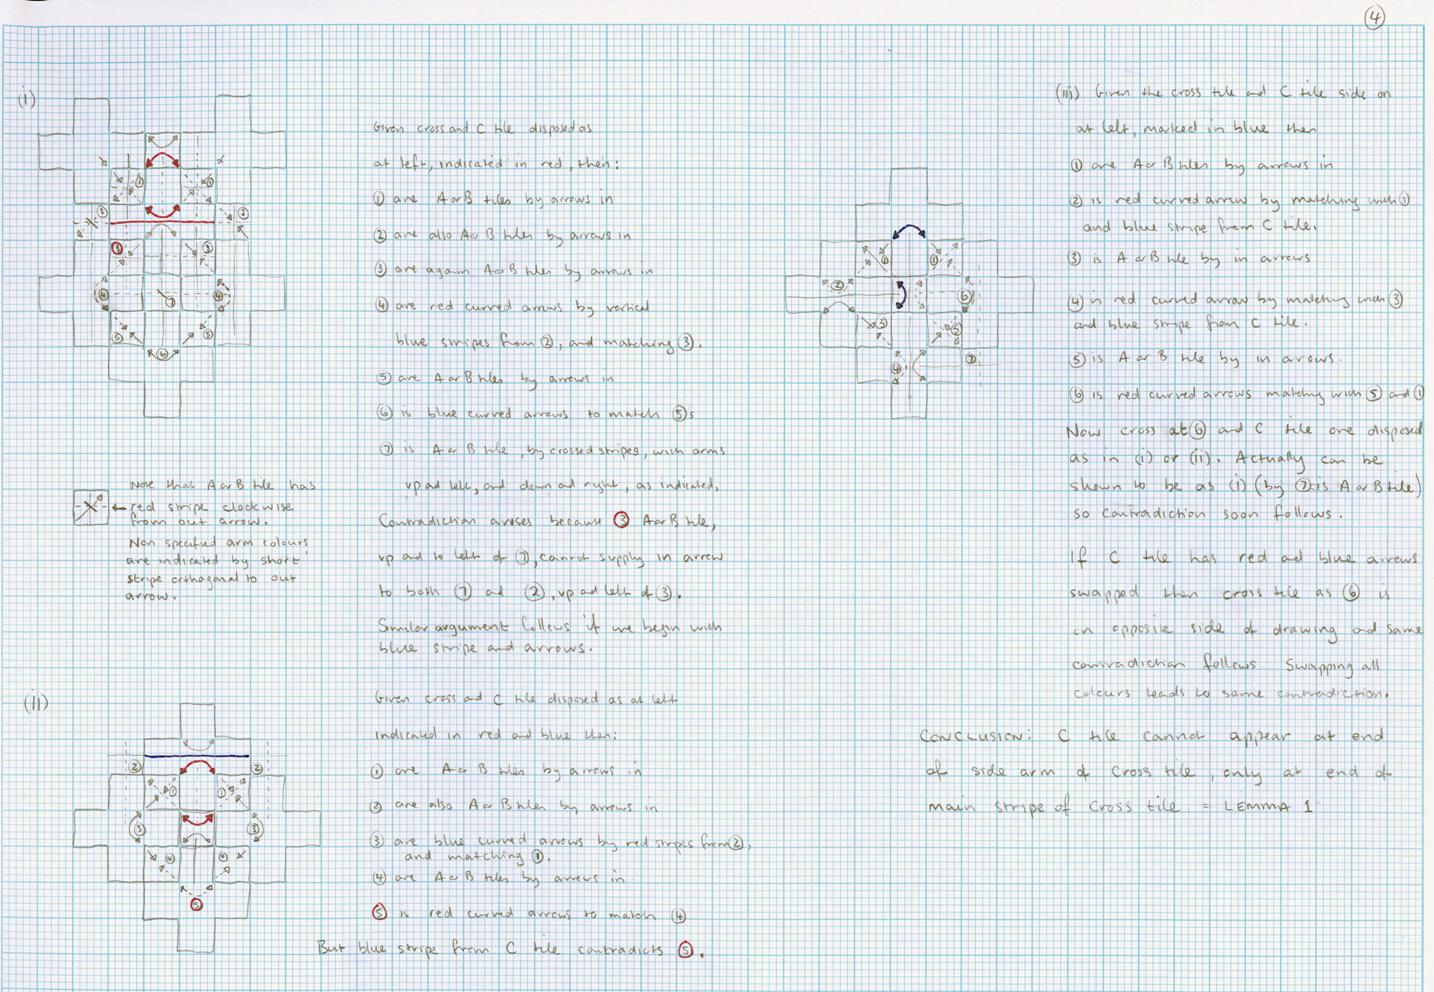 ④
(i)
Given cross and C tile disposed as
at left, indicated in red, then:
① are A or B tiles by arrows in
② are also A or B tiles by arrows in
③ are again A or B tiles by arrows in
④ are red curved arrows by vertical
blue stripes from ②, and matching ③.
⑤ are A or B tiles by arrows in
⑥ is blue curved arrows to match ⑤s
⑦ is A or B tile, by crossed stripes, with arms
up ad left, and down ad right, as indicated,
Contradiction arises because ③ A or B tile,
up ad to left of ⑦, cannot supply in arrow
to both ⑦ ad ②, up ad left of ③.
Similar argument follows if we begin with
blue stripe and arrows.
Note that A or B tile has
red stripe clockwise
from out arrow.
Non specified arm colours
are indicated by short
stripe orthogonal to out
arrow.
(ii)
Given cross and C tile disposed as at left
indicated in red and blue then:
① are A or B tiles by arrows in
② are also A or B tiles by arrows in
③ are blue curved arrows by red stripes from ②,
and matching ①.
④ are A or B tiles by arrows in
⑤ is red curved arrows to match ④
But blue stripe from C tile contradicts ⑤.
(iii) Given the cross tile and C tile side on
at left, marked in blue then
① are A or B tiles by arrows in
② is red curved arrow by matching with ①
and blue stripe from C tile.
③ is A or B tile by in arrows
④ is red curved arrow by matching with ③
and blue stripe from C tile.
⑤ is A or B tile by in arrows.
⑥ is red curved arrows matching with ⑤ and ①
Now cross at ⑥ and C tile are disposed
as in (i) or (ii). Actually can be
shown to be as (i) (by ⑦ is A or B tile)
so contradiction soon follows.
If C tile has red ad blue arrows
swapped then cross tile as ⑥ is
on opposite side of drawing ad same
contradiction follows. Swapping all
colours leads to same contradiction.
CONCLUSION: C tile cannot appear at end
of side arm of cross tile, only at end of
main stripe of cross tile = LEMMA 1